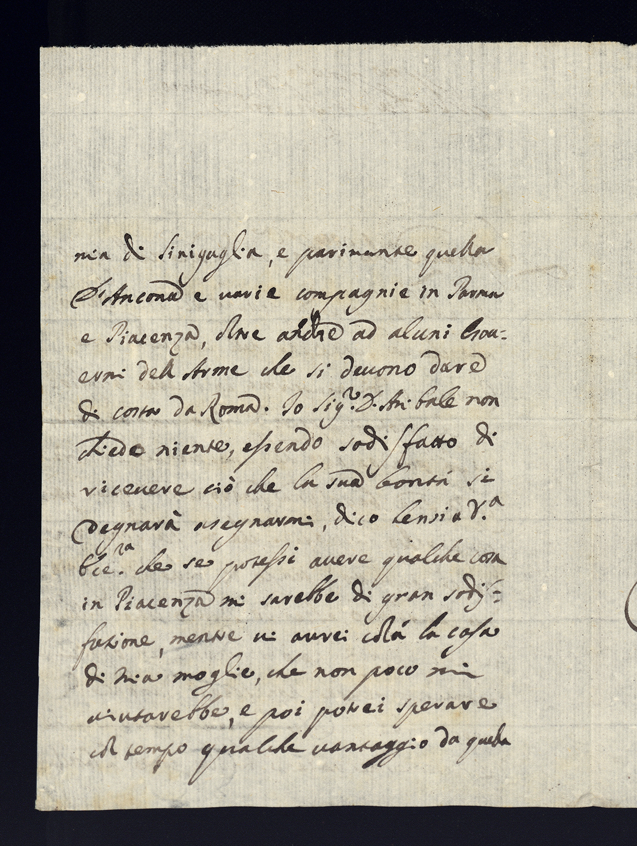 nia di Sinigaglia, e parimente quella
D'Ancona e varie compagnie in Parma
e Piacenza, oltre anche ad aluni Gou-
erni dell Arme che si devono dare
di costa da Roma. Io Sig.r D. Anibale non
chiedo niente, essendo sodisfatto di
ricevere ciò che la sua bontà si
degnarà asegnarmi, dico bensi a V.a
che se potessi avere qualche cosa
in Piacenza mi sarebbe di gran sodis-
fazione, mentre vi avrei colà la casa
di mia moglie, che non poco mi
aiutarebbe, e poi potrei sperare
col tempo qualche vantaggio da quella